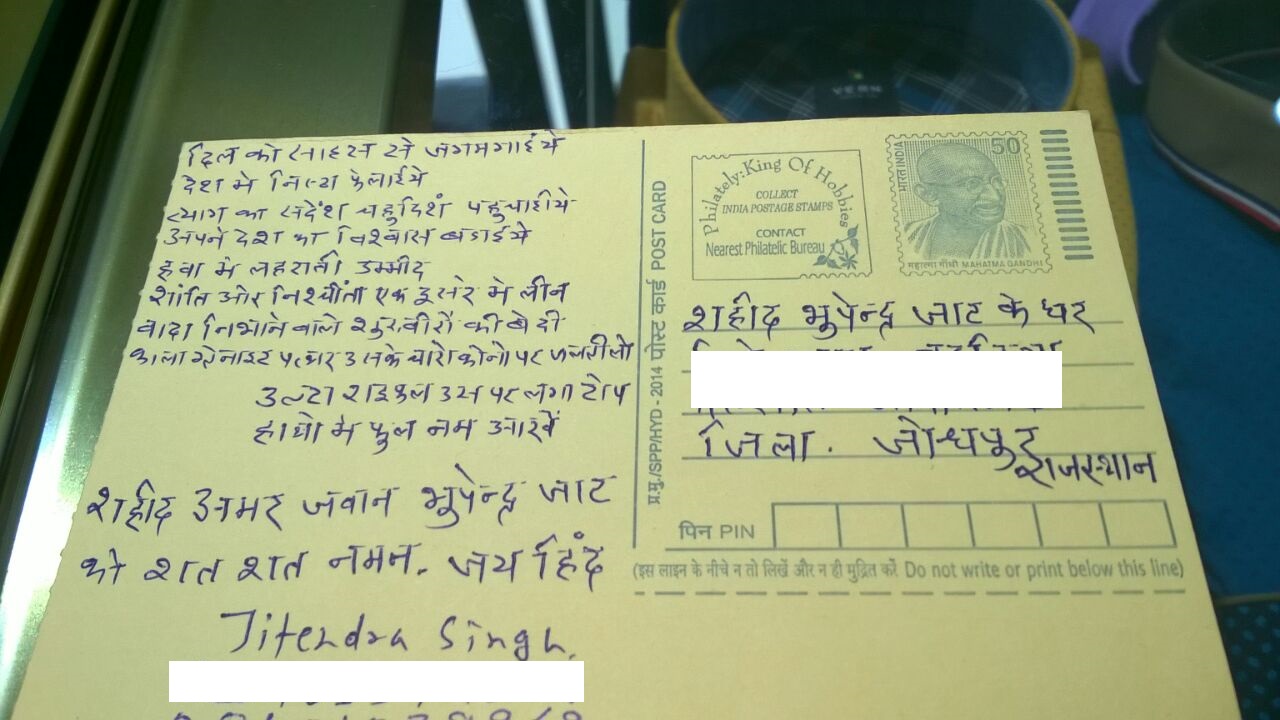 दिल को साहस से जगमगाइये
देश मे निष्ठा फैलाईये
त्याग का संदेश चहुदिशं पहुचाईये
अपने देश का विश्वास बडाईये
हवा मे लहराती उम्मीद
शांति और निश्चींता एक दुसरे मे लीन
वादा निभाने वाले शुरवीरों की बेदी
काला ग्रेनाइट पत्थर उसके चारो कोनो पर
उल्टा राइफल उस पर लगा टोप
हाथो मे फुल नम आखें
शहीद अमर जवान भुपेन्द्र जाट
को शत शत नमन. जय हिंद
Jitendra Singh.
प्र.मु./SPP/HYD - 2014 पोस्ट कार्ड POST CARD
Philately: King Of Hobbies
COLLECT
INDIA POSTAGE STAMPS
CONTACT
Nearest Philatelic Bureau
भारत INDIA
50
महात्मा गाँधी MAHATMA GANDHI
शहीद भुपेन्द्र जाट के घर
जिला. जोधपुर
राजस्थान
पिन PIN
(इस लाइन के नीचे न तो लिखें और न ही मुद्रित करें Do not write or print below this line)
VERN